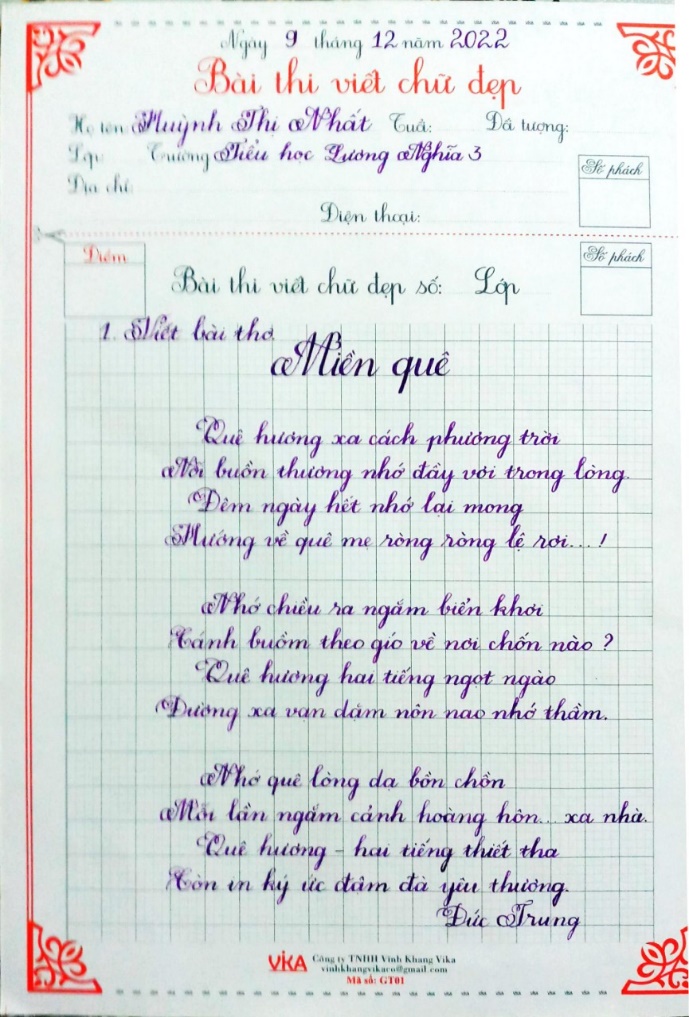 Ngày 9 tháng 12 năm 2022
Bài thi viết chữ đẹp
Họ tên: Huỳnh Thị Nhất Tuổi: Dân tộc:
Lớp: Trường Tiểu học Lương Nghĩa 3
Số phách
Địa chỉ:
Điện thoại:
Điểm
Số phách
Bài thi viết chữ đẹp số: Lớp
1. Viết bài thơ
Miền quê
Quê hương xa cách phương trời
Nỗi buồn thương nhớ đầy vơi trong lòng.
Đêm ngày hết nhớ lại mong
Hướng về quê mẹ ròng ròng lệ rơi...!
Nhớ chiều ra ngắm biển khơi
Cánh buồm theo gió về nơi chốn nào?
Quê hương hai tiếng ngọt ngào
Đường xa vạn dặm nôn nao nhớ thầm.
Nhớ quê lòng dạ bồn chồn
Mỗi lần ngắm cảnh hoàng hôn... xa nhà.
Quê hương - hai tiếng thiết tha
Còn in ký ức đậm đà yêu thương.
Đức Trung
VIKA Công ty TNHH Vĩnh Khang Vika
vinhkhangvikaco@gmail.com
Mã số: GT01